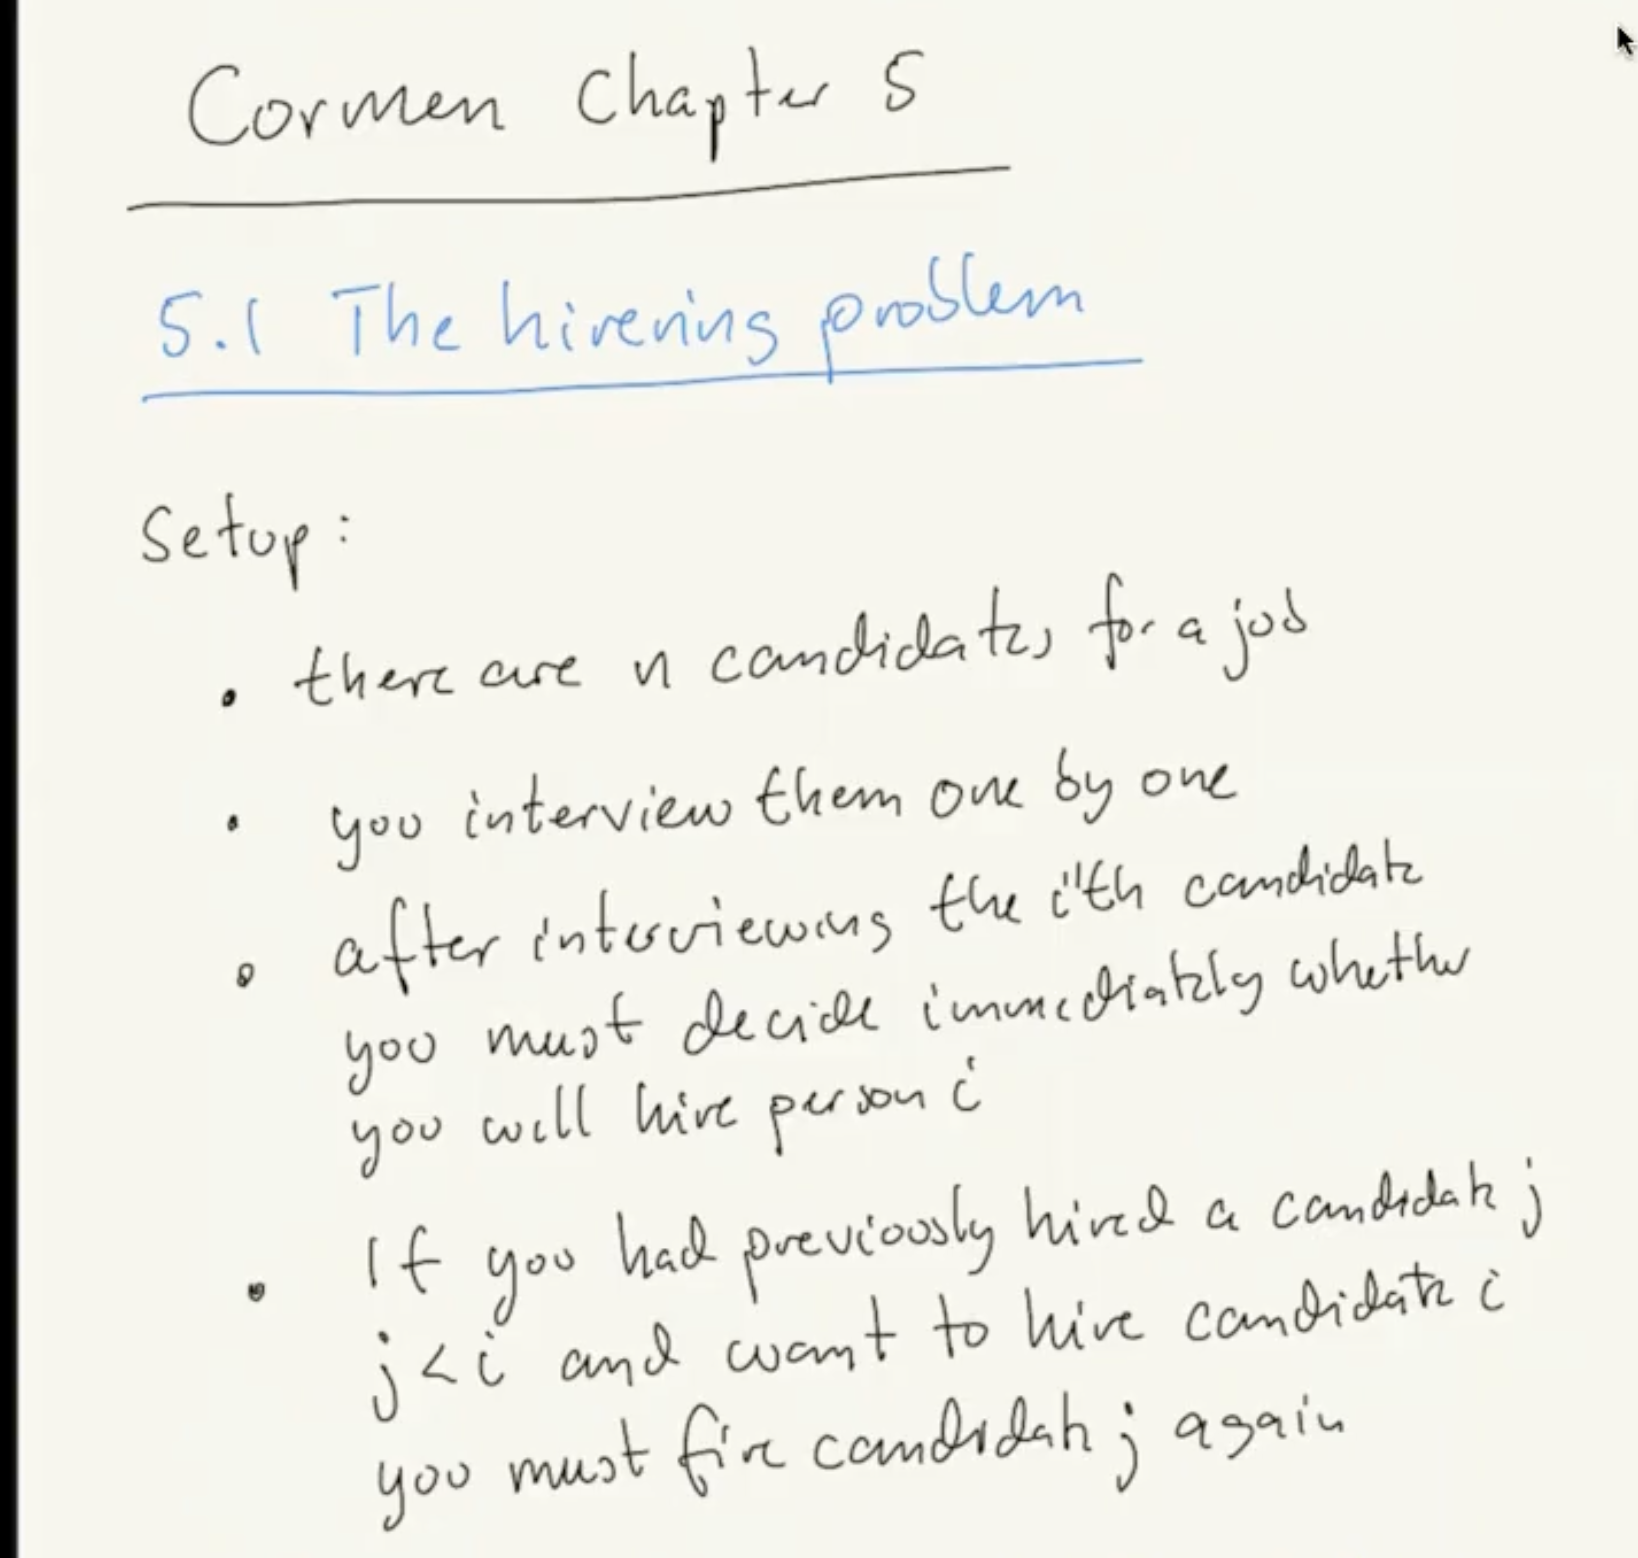 Cormen Chapter 5
5.1 The hirering problem
Setup:
• there are n candidates for a job
• you interview them one by one
• after interviewing the i'th candidate
you must decide immediately whether
you will hire person i
• If you had previously hired a candidate j
j < i and want to hire candidate i
you must fire candidate j again